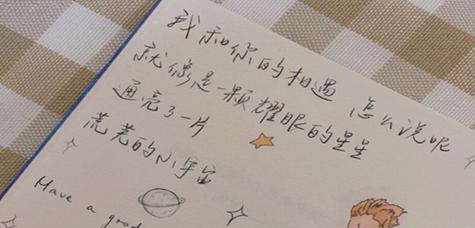 我和你的相遇 怎么说呢
就像是一颗耀眼的星星
通亮了一片
荒芜的小宇宙
Have a good